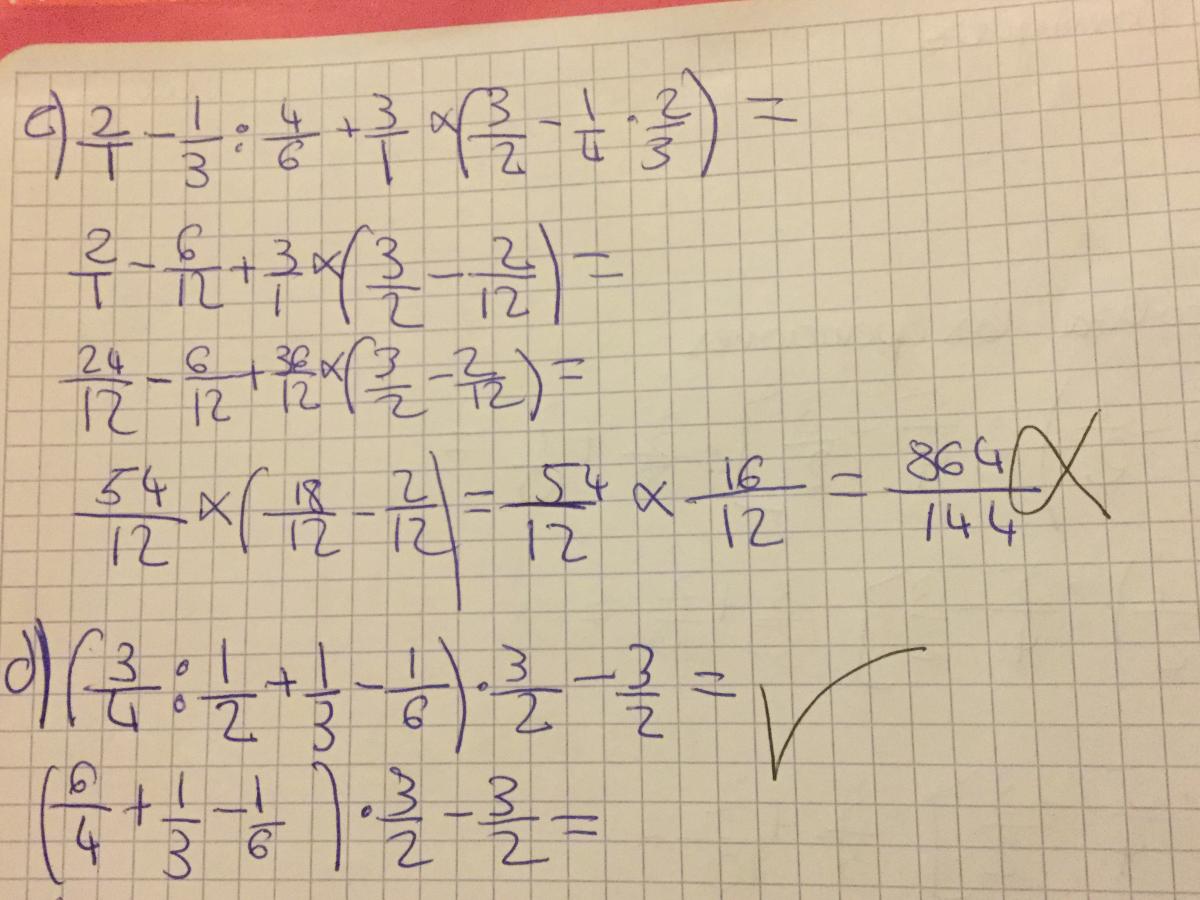 c) 2/1 - 1/3 : 4/6 + 3/1 × (3/2 - 1/4 · 2/3) =
2/1 - 6/12 + 3/1 × (3/2 - 2/12) =
24/12 - 6/12 + 36/12 × (3/2 - 2/12) =
54/12 × (18/12 - 2/12) = 54/12 × 16/12 = 864/144
d) (3/4 : 1/2 + 1/3 - 1/6) · 3/2 - 3/2 =
(6/4 + 1/3 - 1/6) · 3/2 - 3/2 =